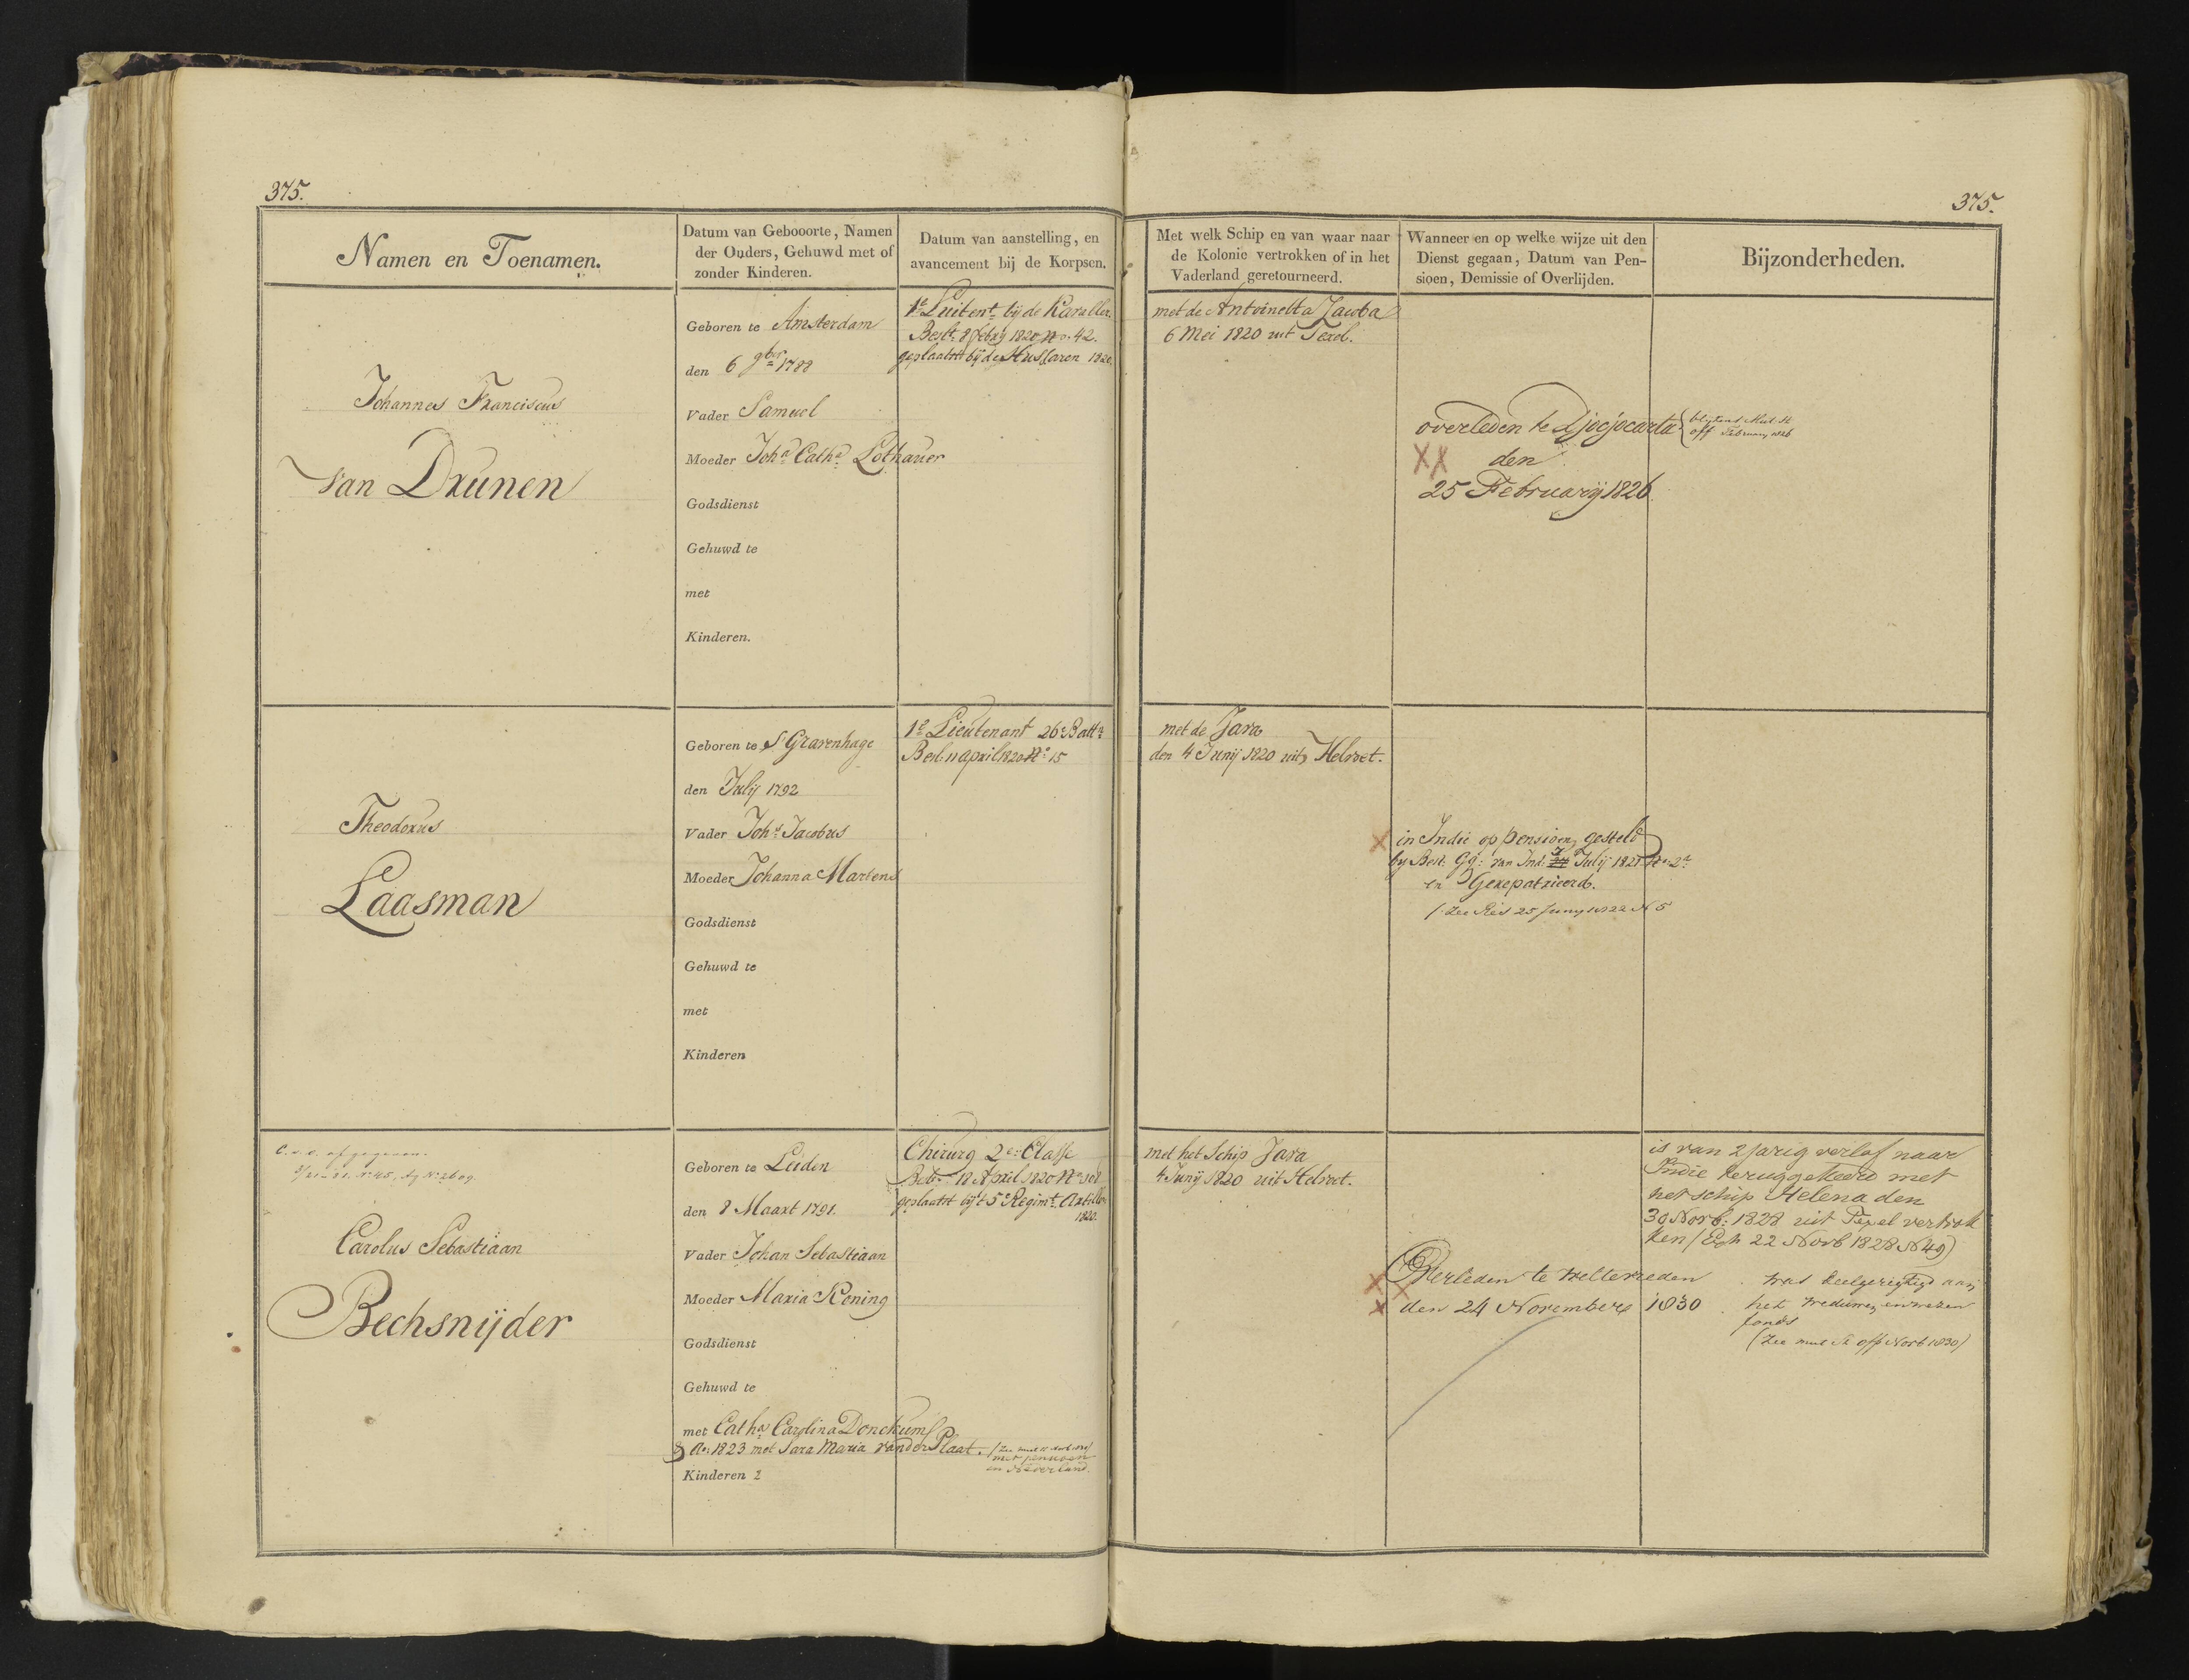 375.
375.
Namen en Toenamen.
Datum van Gebooorte, Namen
der Ouders, Gehuwd met of
zonder Kinderen.
Datum van aanstelling, en
avancement bij de Korpsen.
Met welk Schip en van waar naar
de Kolonie vertrokken of in het
Vaderland geretourneerd.
Wanneer en op welke wijze uit den
Dienst gegaan, Datum van Pen-
sioen, Demissie of Overlijden.
Bijzonderheden.
Johannes Franciscus
Van Drunen
Geboren te Amsterdam
den 6 9ber 1788
Vader Samuel
Moeder Joha Catha Lothauer
Godsdienst
Gehuwd te
met
Kinderen.
1e Luitent bij de Kavaller.
Beslt 8 Febrij 1820 No. 42.
geplaatst bij de Hussaren 1820.
met de Antoinetta Jacoba
6 Mei 1820 uit Texel.
overleden te Djocjocarta
den
25 Februarij 1826.
blijkens Mut. St
off Februarij 1826
Theodorus
Laasman
Geboren te S'Gravenhage
den Julij 1792
Vader Johs Jacobus
Moeder Johanna Martens
Godsdienst
Gehuwd te
met
Kinderen
1e Lieutenant 26e Battn
Besl. 11 april 1820 No 15
met de Java
den 4 Junij 1820 uit Helvoet.
in Indie op pensioen gesteld
by Besl: GG: van Ind: 24 7 Julij 1821 No: 2
en Gerepatrieerd.
(Zee Res 25 Juny 1822 N 5
C. v. d. afgegeven.
Carolus Sebastiaan
Bechsnijder
Geboren te Leiden
den 8 Maart 1791.
Vader Johan Sebastiaan
Moeder Maria Koning
Godsdienst
Gehuwd te
met Catha Carolina Donckum
Ao: 1823 met Sara Maria van der Plaat.
met pensioen
in Nederland.
Kinderen 2
Chirurg 2e: Classe
18 April 1820 No 101
geplaatst bij 't 5e Regimt Artille
1820.
met het Schip Java
4 Junij 1820 uit Helvoet.
Overleden te Weltevreden
den 24 November 1830
is van 2 jarig verlof naar
Indie teruggekeerd met
het schip Helena den
30 Novb: 1828 uit Texel vertrok
ken (Exh 22 Novb 1828 N 49)
was deelgeregtigd aan
het weduwen en weezen
fonds
(Zee mut St off Novb 1830)